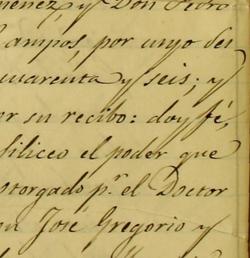 menez, y Don Pedro
ampos, por cuyo de
uarenta y seis; y
or su recibo: doy fé,
siliceo el poder que
otorgado p.r el Doctor
on José Gregorio y